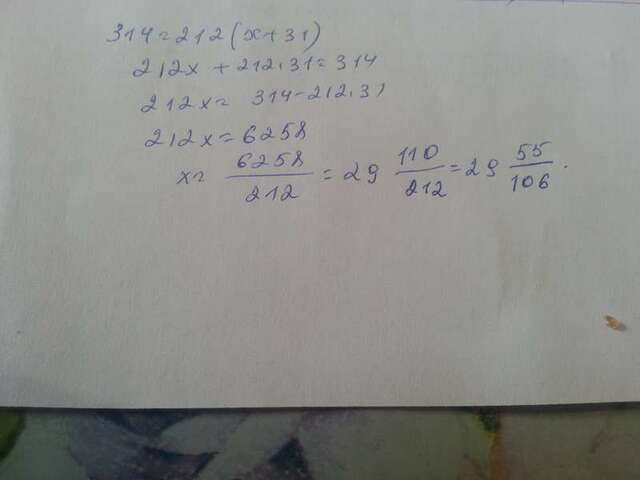 314=212(x+31)
212x+212·31=314
212x=314-212·31
212x=6258
x=6258/212=29 110/212=29 55/106.